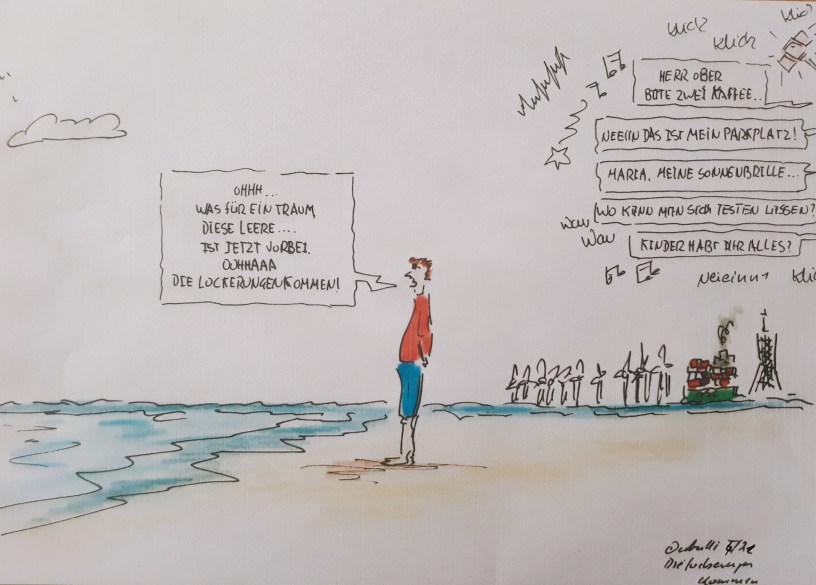 OHHH...
WAS FÜR EIN TRAUM
DIESE LEERE....
IST JETZT VORBEI.
OUHHAAA
DIE LOCKERUNGEN KOMMEN!
Klick
Klick
Klick
HERR OBER
BITTE ZWEI KAFFEE..
NEEIIN DAS IST MEIN PARKPLATZ!
MARIA, MEINE SONNENBRILLE...
WO KANN MAN SICH TESTEN LASSEN?
WAU
WAU
KINDER HABT IHR ALLES?
Neieinn
Klic
5/21
Die Lockerungen
kommen